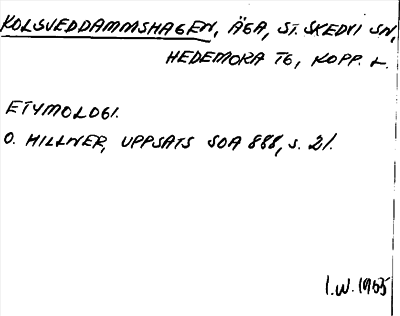 KOLSVEDDAMMSHAGEN, ÄGA, ST. SKEDVI SN,
HEDEMORA TG, KOPP. L.
ETYMOLOGI.
O. HILLNER, UPPSATS SOA 888, S. 21.
I.W. 1965